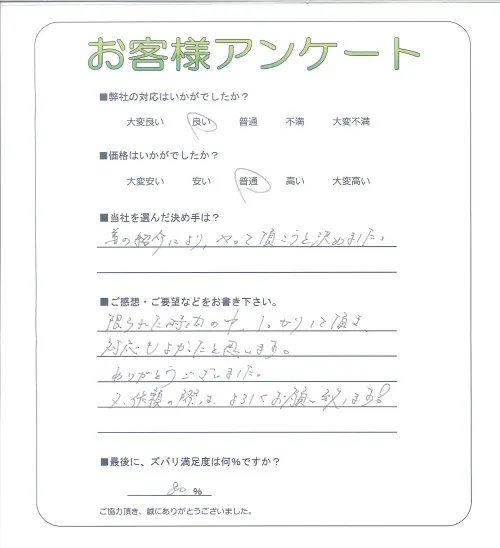 お客様アンケート
■弊社の対応はいかがでしたか？
大変良い 良い 普通 不満 大変不満
■価格はいかがでしたか？
大変安い 安い 普通 高い 大変高い
■当社を選んだ決め手は？
の紹介により、やって頂こうと決めました。
■ご感想・ご要望などをお書き下さい。
限られた時間の中、しっかりして頂き、
対応もよかったと思います。
ありがとうございました。
又、依頼の際は、よろしくお願い致します。
■最後に、ズバリ満足度は何％ですか？
80 %
ご協力頂き、誠にありがとうございました。